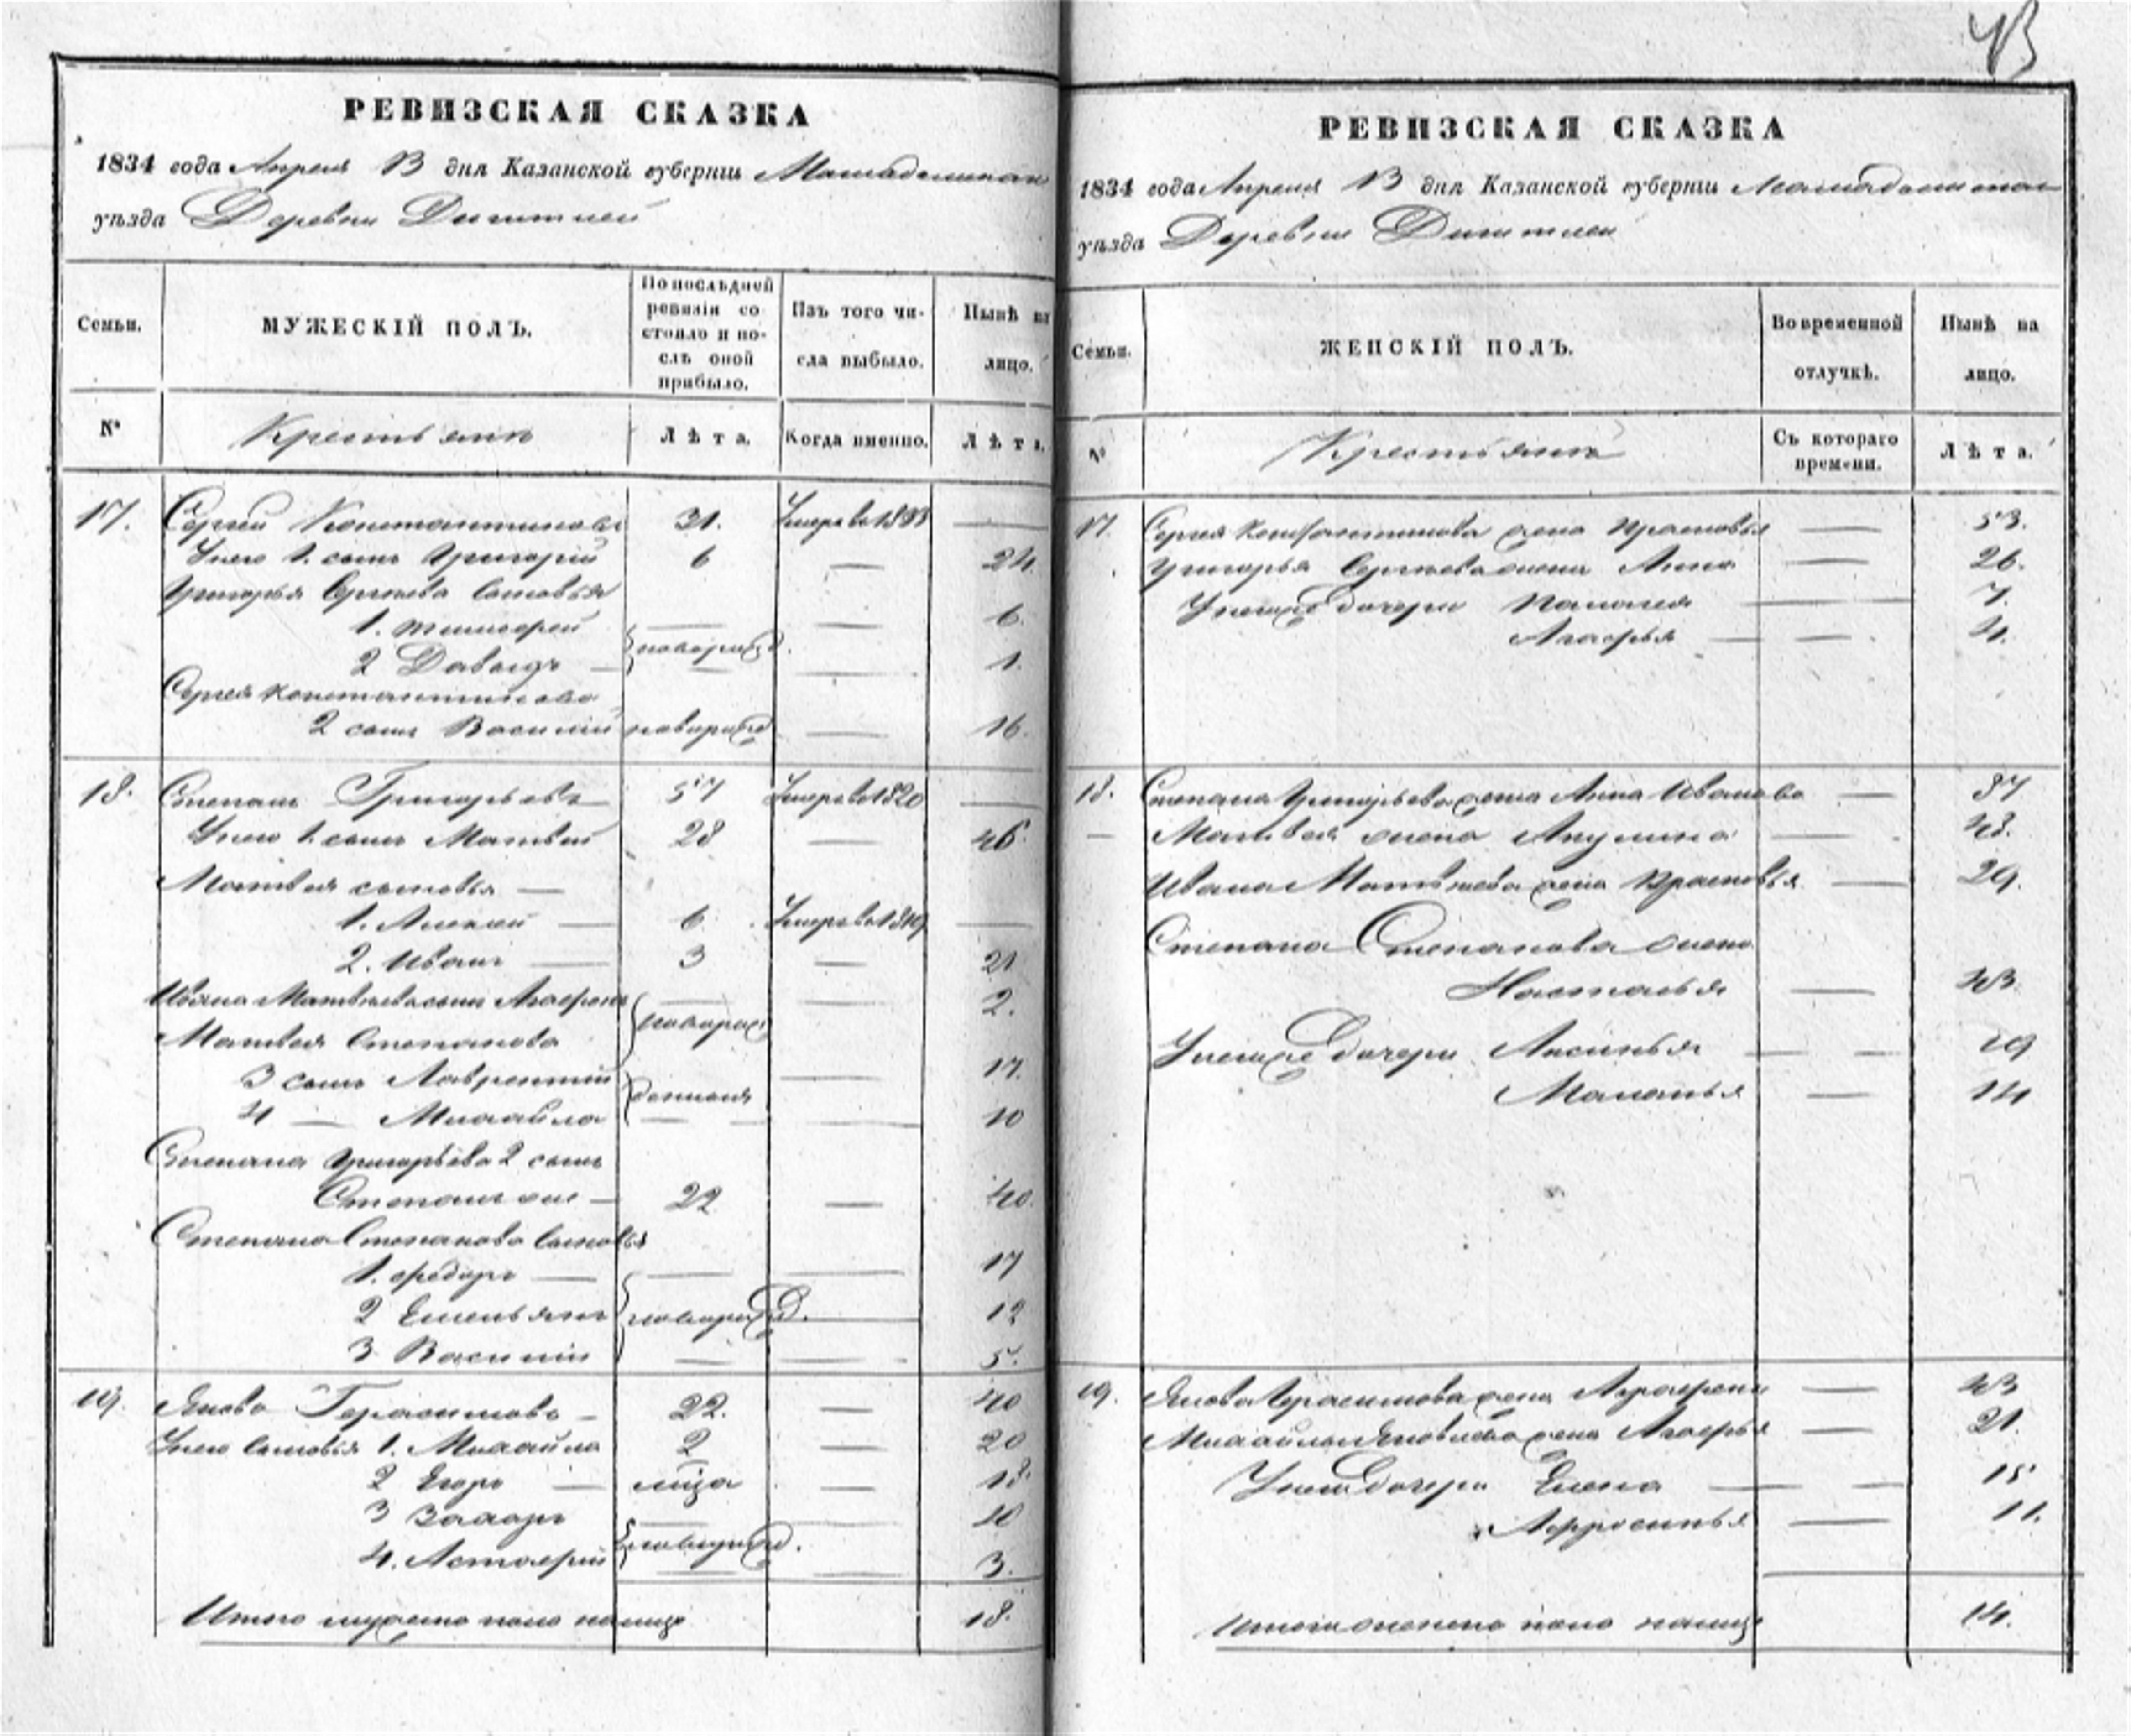 РЕВИЗСКАЯ СКАЗКА
1834 года Апреля 13 дня Казанской губерніи
уѣзда Деревни
Семьи.
МУЖЕСКІЙ ПОЛЪ.
По послѣдней ревизіи состояло и послѣ оной прибыло.
Изъ того числа выбыло.
Нынѣ на лицо.
№
Крестьянъ
Лѣта.
Когда именно.
Лѣта.
17. Сергей Константиновъ 31. Умеръ в 1833 —
У него 1. сынъ Григорій 6 — 24.
Григорья Сергѣева сыновья
1. — — 6.
2 Давыдъ — — — 1.
Сергея Константинова
2 сынъ Василій — 16.
18. Степанъ Григорьевъ 57 Умеръ в 1820 —
У него 1. сынъ Матвей 28 — 46.
Матвея сыновья —
1. Алексей — 6 Умеръ в 1819 —
2. Иванъ — 3 — 21
Ивана Матвѣева сынъ — — 2.
Матвея Степанова
3 сынъ Лаврентій — 17.
4 — Михайла — — — 10
Степана Григорьева 2 сынъ
Степанъ же — 22 — 40.
Степана Степанова сыновья
1. Федоръ — — — 17
2 Емельянъ — 12
3 Василій — — 5.
19. Якова Герасимовъ — 22. — 40
У него сыновья 1. Михайла 2 — 20
2 Егоръ — — 18.
3 Захаръ — — 10
4. — — 3.
Итого мужеска пола налицо 18.
РЕВИЗСКАЯ СКАЗКА
1834 года Апреля 13 дня Казанской губерніи
уѣзда Деревни
Семьи.
ЖЕНСКІЙ ПОЛЪ.
Во временной отлучкѣ.
Нынѣ на лицо.
№
Крестьянъ
Съ котораго времени.
Лѣта.
17. Сергея Константинова жена — 53.
Григорья Сергѣева жена Анна — 26.
У нихъ дочери — 7.
Агафья — — 4.
18. Степана Григорьева жена Анна Иванова — 57
— Матвея жена Акулина — 48.
Ивана Матвѣева жена — 29.
Степана Степанова жена
Настасья — 43
У нихъ дочери Аксинья — — 19
Маланья — 14
19. Якова Герасимова жена — 43
Михайлы Яковлева жена Агафья — 21.
дочери Елена — — 15
Афросинья — 11.
Итого женска пола налицо 14.